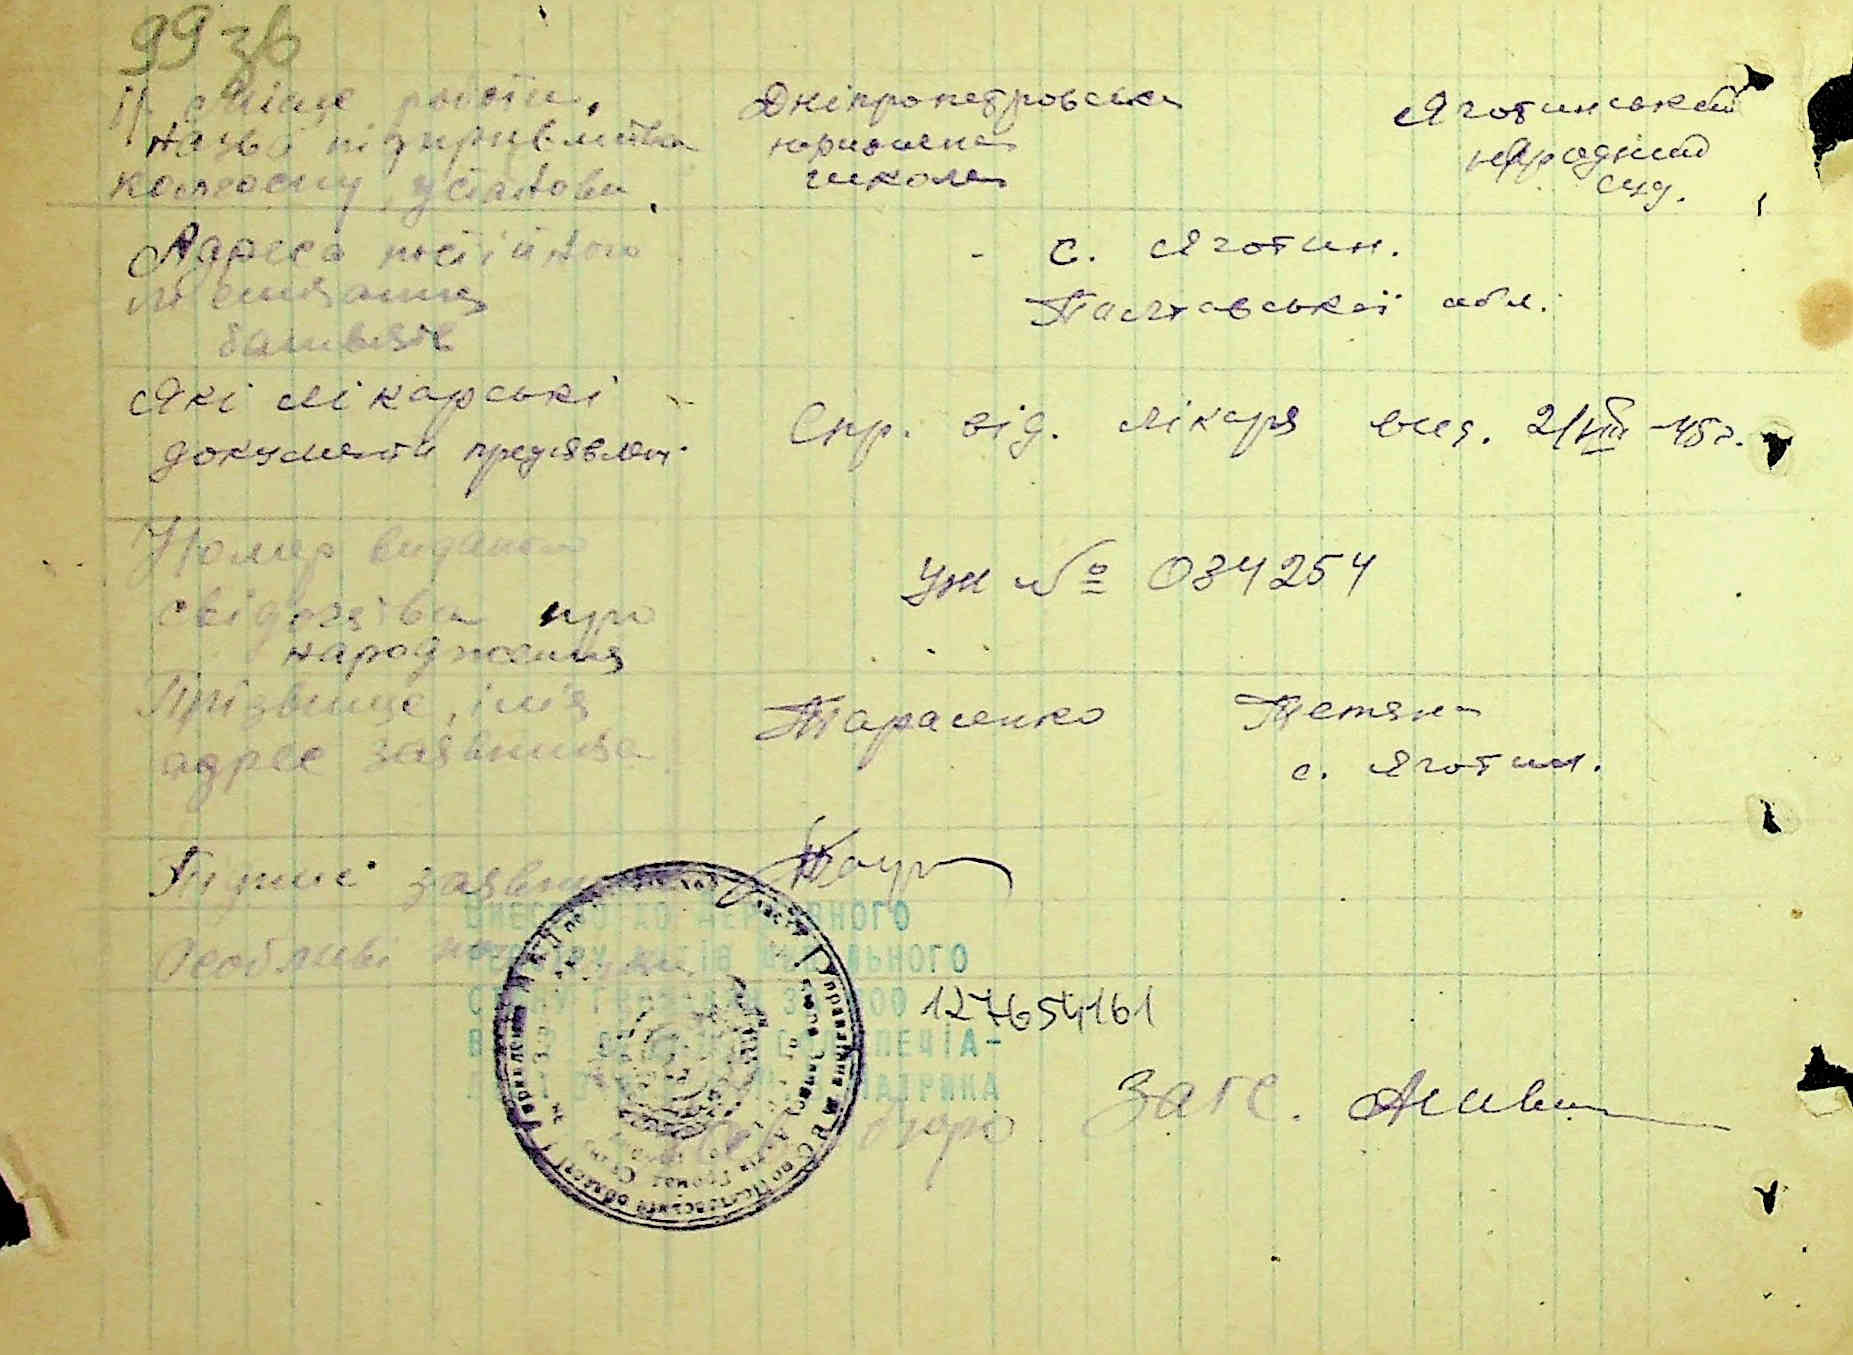 99 зв
Місце роботи,
назва підприємства
колгоспу, установи.
Дніпропетровська
юридична
школа
Яготинський
народний
суд.
Адреса постійного
мешкання
батьків
- с. Яготин.
Полтавської обл.
Які лікарські
документи предявлен.
Спр. від. лікаря вид. 2/VIII-45 г.
Номер виданого
свідоцтва про
народження
УЖ № 034254
Прізвище, імя
адрес заявника
Тарасенко Тетяна
с. Яготин.
Підпис заявника
Особливі
ВНЕСЕНО ДО ДЕРЖАВНОГО
РЕЄСТРУ АКТІВ ЦИВІЛЬНОГО
СТАНУ ГРОМАДЯН ЗА №00 127654161
бюро загс.